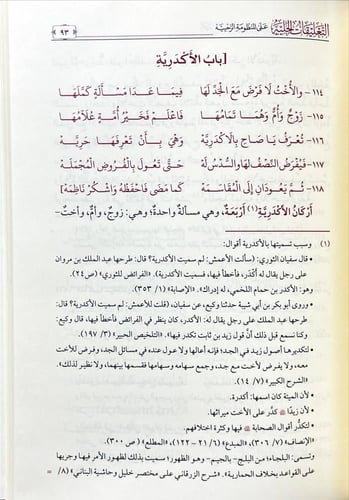 التعليقات الجلية على المنظومة الرحبية ٩٣
[باب الأكدرية
١١٤ - والأخت لا فرض مع الجد لها فيما عدا مسألة كملها
١١٥ - زوج وأم وهما تمامها فاعلم فخير أمة علامها
١١٦ - تعرف يا صاح بالأكدرية وهي بأن تعرفها حرية
١١٧ - فيفرض النصف لها والسدس له حتى تعول بالفروض المجملة
١١٨ - ثم يعودان إلى المقاسمة كما مضى فاحفظه واشكر ناظمه]
أركان الأكدرية(١) أربعة، وهي مسألة واحدة؛ وهي: زوج، وأم، وأخت-
(١) وسبب تسميتها بالأكدرية أقوال:
• قال سفيان الثوري: (سألت الأعمش: لم سميت الأكدرية؟ قال: طرحها عبد الملك بن مروان
على رجل يقال له أكدر، فأخطأ فيها، فسميت الأكدرية). "الفرائض للثوري" (ص٢٤).
وهو: الأكدر بن حمام اللخمي، له إدراك. "الإصابة" (١/ ٣٥٣).
• وروى أبو بكر بن أبي شيبة حدثنا وكيع، عن سفيان، (قلت للأعمش: لم سميت الأكدرية؟ قال:
طرحها عبد الملك على رجل يقال له: الأكدر، كان ينظر في الفرائض فأخطأ فيها، قال وكيع:
وكنا نسمع قبل ذلك أن قول زيد بن ثابت تكدر فيها). "التلخيص الحبير" (٣/ ١٩٧).
• لتكديرها أصول زيد في الجد؛ فإنه أعالها ولا عول عنده في مسائل الجد، وفرض للأخت
معه، ولا يفرض لأخت مع جد، وجمع سهامه وسهامها فقسمها بينهما، ولا نظير لذلك).
"الشرح الكبير" (٧/ ١٤).
• لأن الميتة كان اسمها: أكدرة.
• لأن زيدًا كدر على الأخت ميراثها.
• لتكدر أقوال الصحابة فيها وكثرة اختلافهم.
"الإنصاف" (٧/ ٣٠٦)، "المبدع" (٦/ ٢١ – ١٢٢)، "المطلع" (ص ٣٠٠).
وتسمى: البلجاء؛ من البلج- بالجيم- وهو الظهور؛ سميت بذلك لظهور الأمر فيها وجريها
على القواعد بخلاف الحمارية. "شرح الزرقاني على مختصر خليل وحاشية البناني" (٨/ =